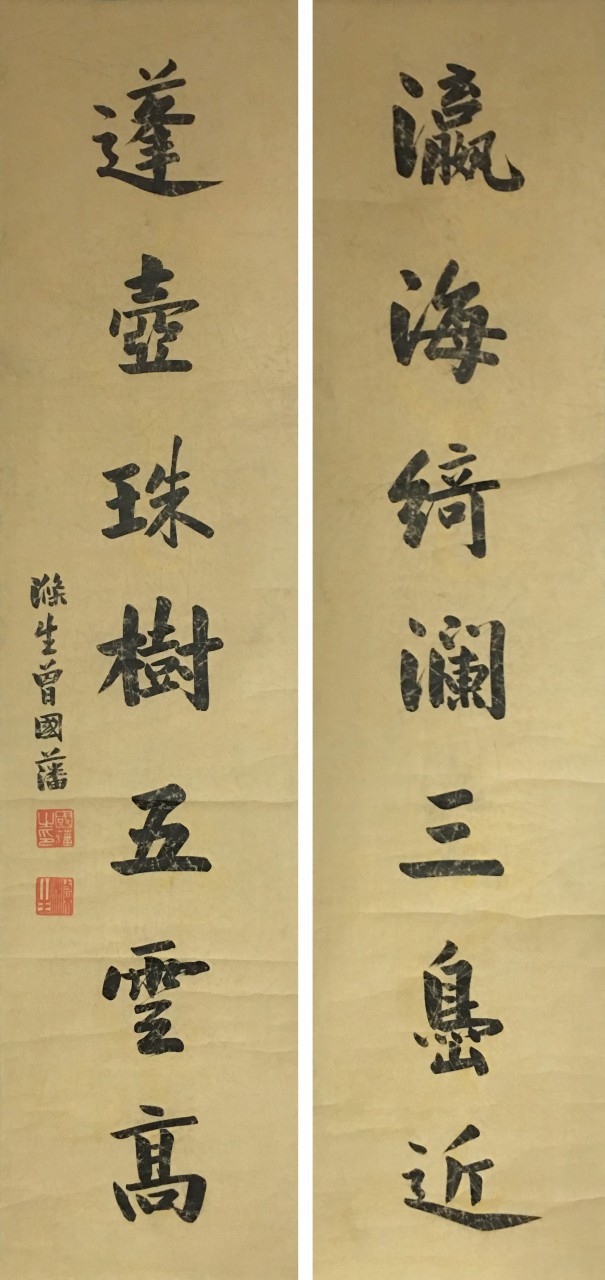 瀛海綺瀾三島近
蓬壺珠樹五雲高
滌生曾國藩